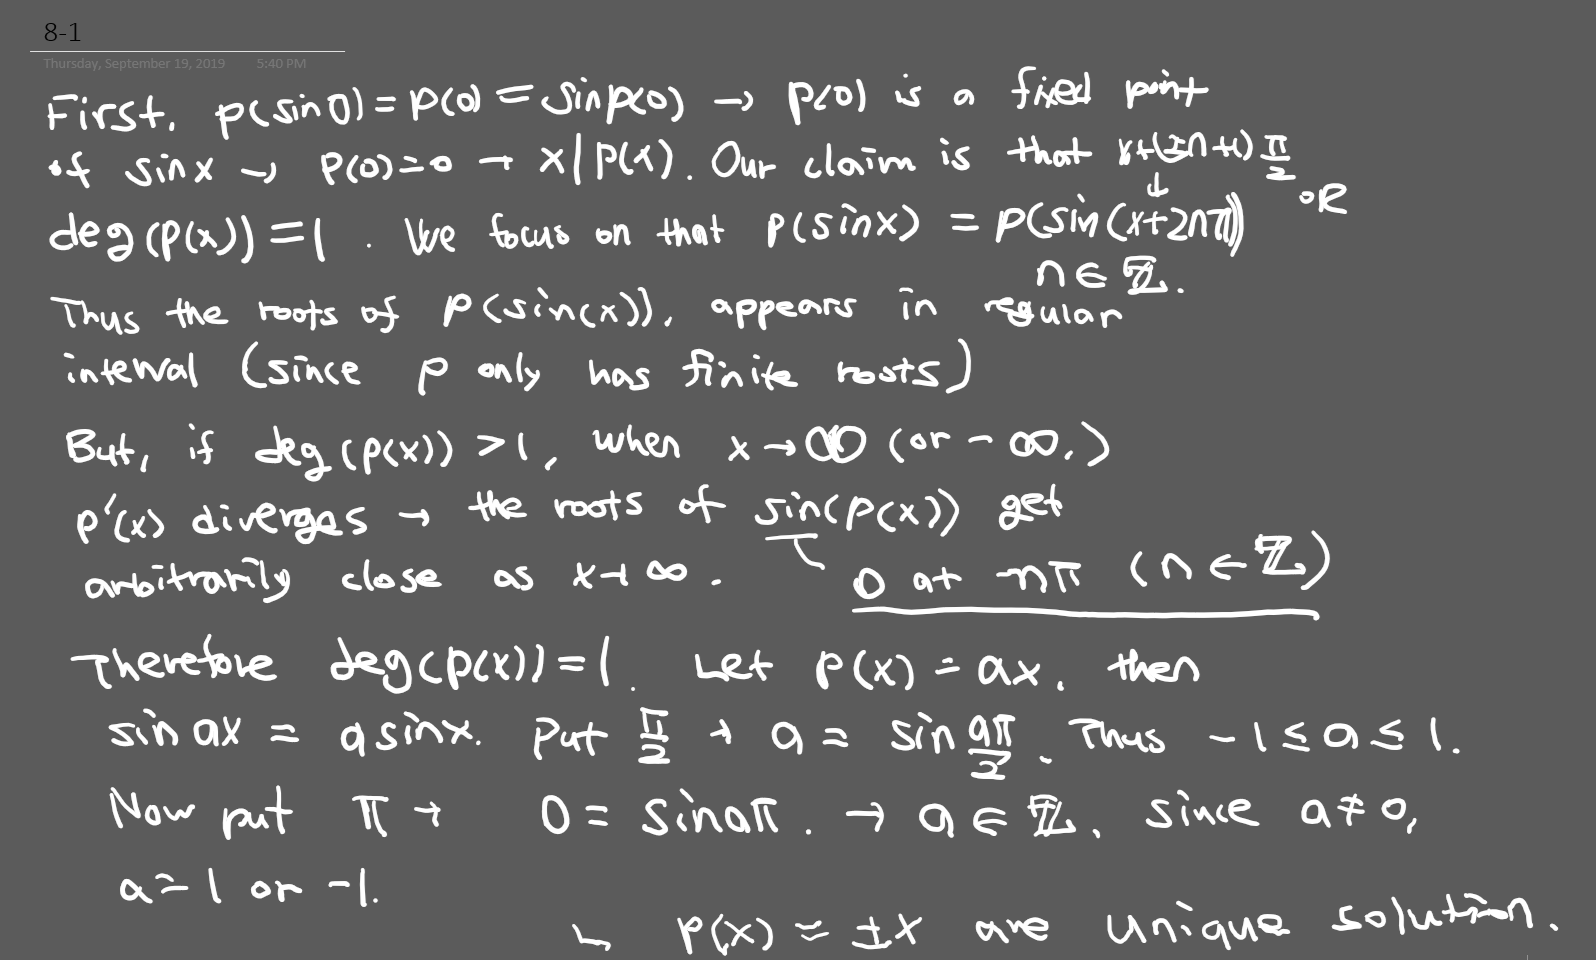 8-1
Thursday, September 19, 2019 5:40 PM
First, p(sin0) = p(0) = sinp(0) → p(0) is a fixed point
of sinx → p(0)=0 → x|p(x). Our claim is that
π/2
deg(p(x))=1. We focus on that p(sinx) = p(sin(x+2nπ)) OR
n∈ℤ.
Thus the roots of p(sin(x)), appears in regular
interval (since p only has finite roots)
But, if deg(p(x))>1, when x→∞ (or -∞,)
p'(x) diverges → the roots of sin(p(x)) get
arbitrarily close as x→∞. 0 at nπ (n∈ℤ)
Therefore deg(p(x))=1. Let p(x)=ax, then
sin ax = a sinx. Put π/2 → a = sin aπ/2. Thus -1≤a≤1.
Now put π → 0 = sin aπ. → a∈ℤ, since a≠0,
a=1 or -1.
↳ p(x) = ±x are unique solution.